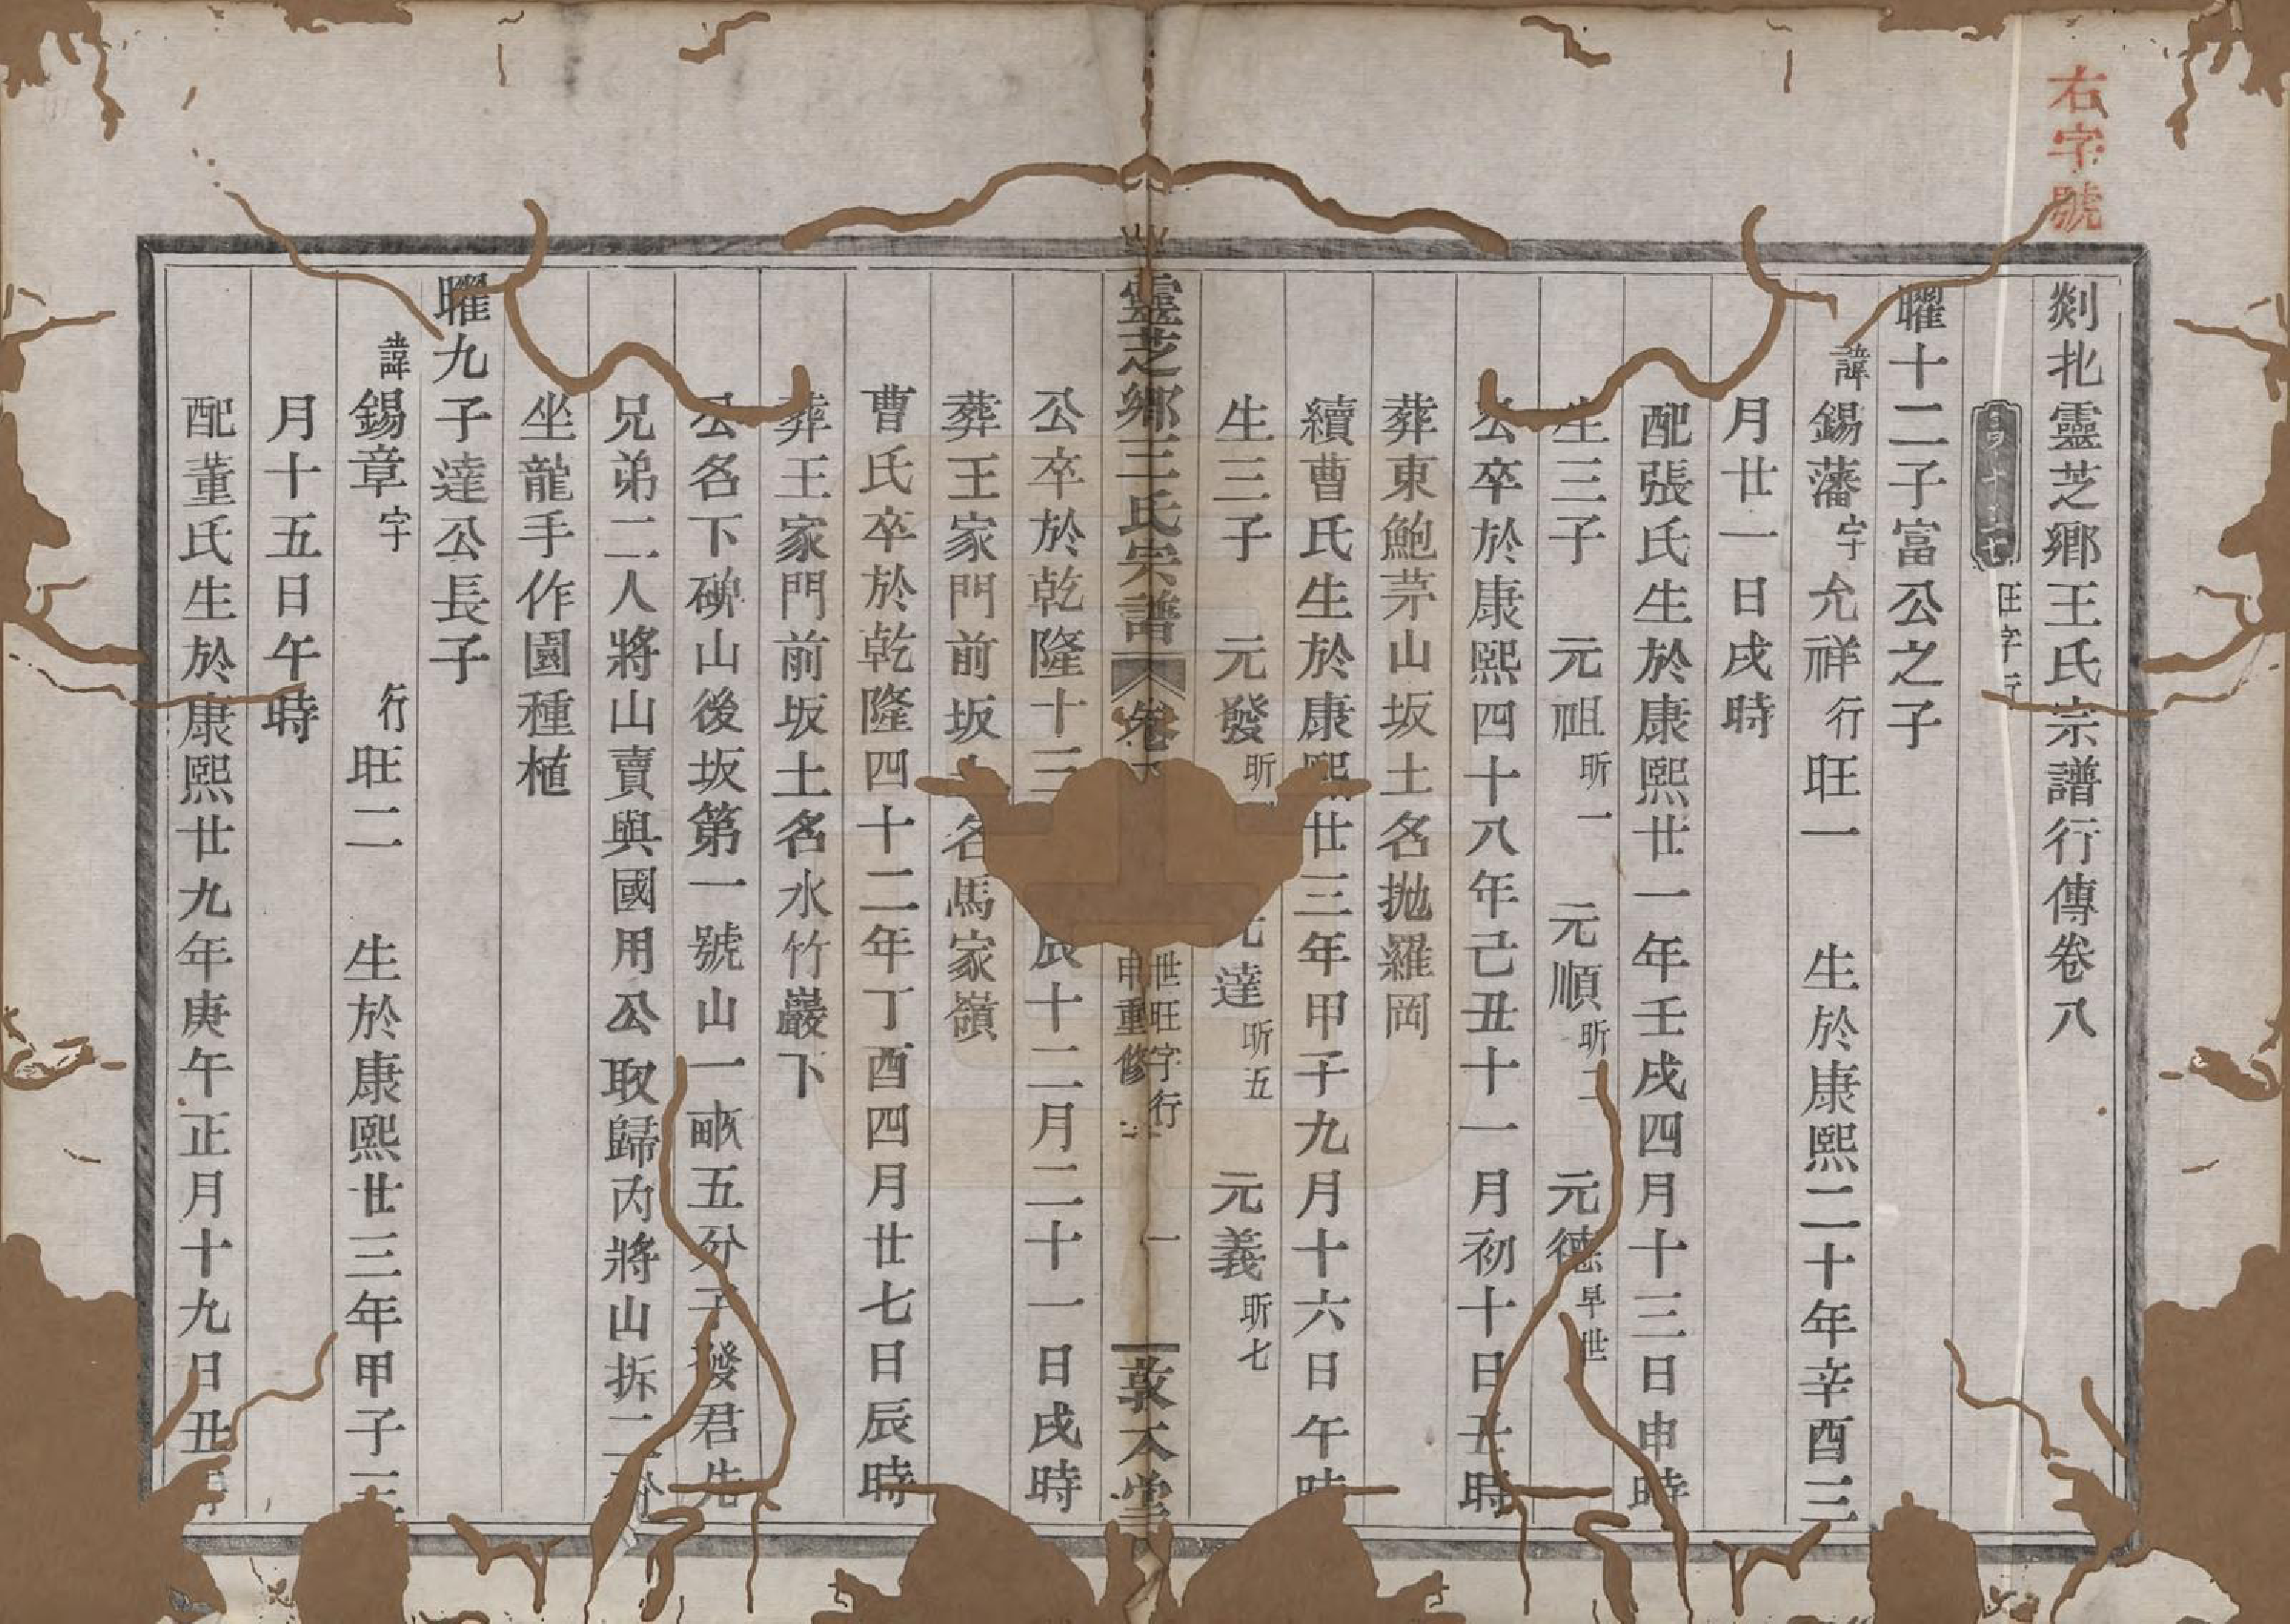 右字號
剡北靈芝鄉王氏宗譜行傳卷八
旺字行
曜十二子富公之子
諱錫藩字允祥行旺一 生於康熙二十年辛酉三
月廿一日戌時
配張氏生於康熙廿一年壬戌四月十三日申時
生三子 元祖昕一 元順昕二 元德早世
公卒於康熙四十八年己丑十一月初十日丑時
葬東鮑茅山坂土名拋羅岡
續曹氏生於康熙廿三年甲子九月十六日午時
生三子 元發昕 元達昕五 元義昕七
靈芝鄉王氏宗譜 卷 世旺字行 申重修 一 敦本堂
公卒於乾隆十三 辰十二月二十一日戌時
葬王家門前坂土名馬家嶺
曹氏卒於乾隆四十二年丁酉四月廿七日辰時
葬王家門前坂土名水竹巖下
公名下碑山後坂第一號山一畝五分子發君先
兄弟二人將山賣與國用公取歸內將山拆二分
坐龍手作園種植
曜九子達公長子
諱錫章字 行旺二 生於康熙廿三年甲子三
月十五日午時
配董氏生於康熙廿九年庚午正月十九日丑時